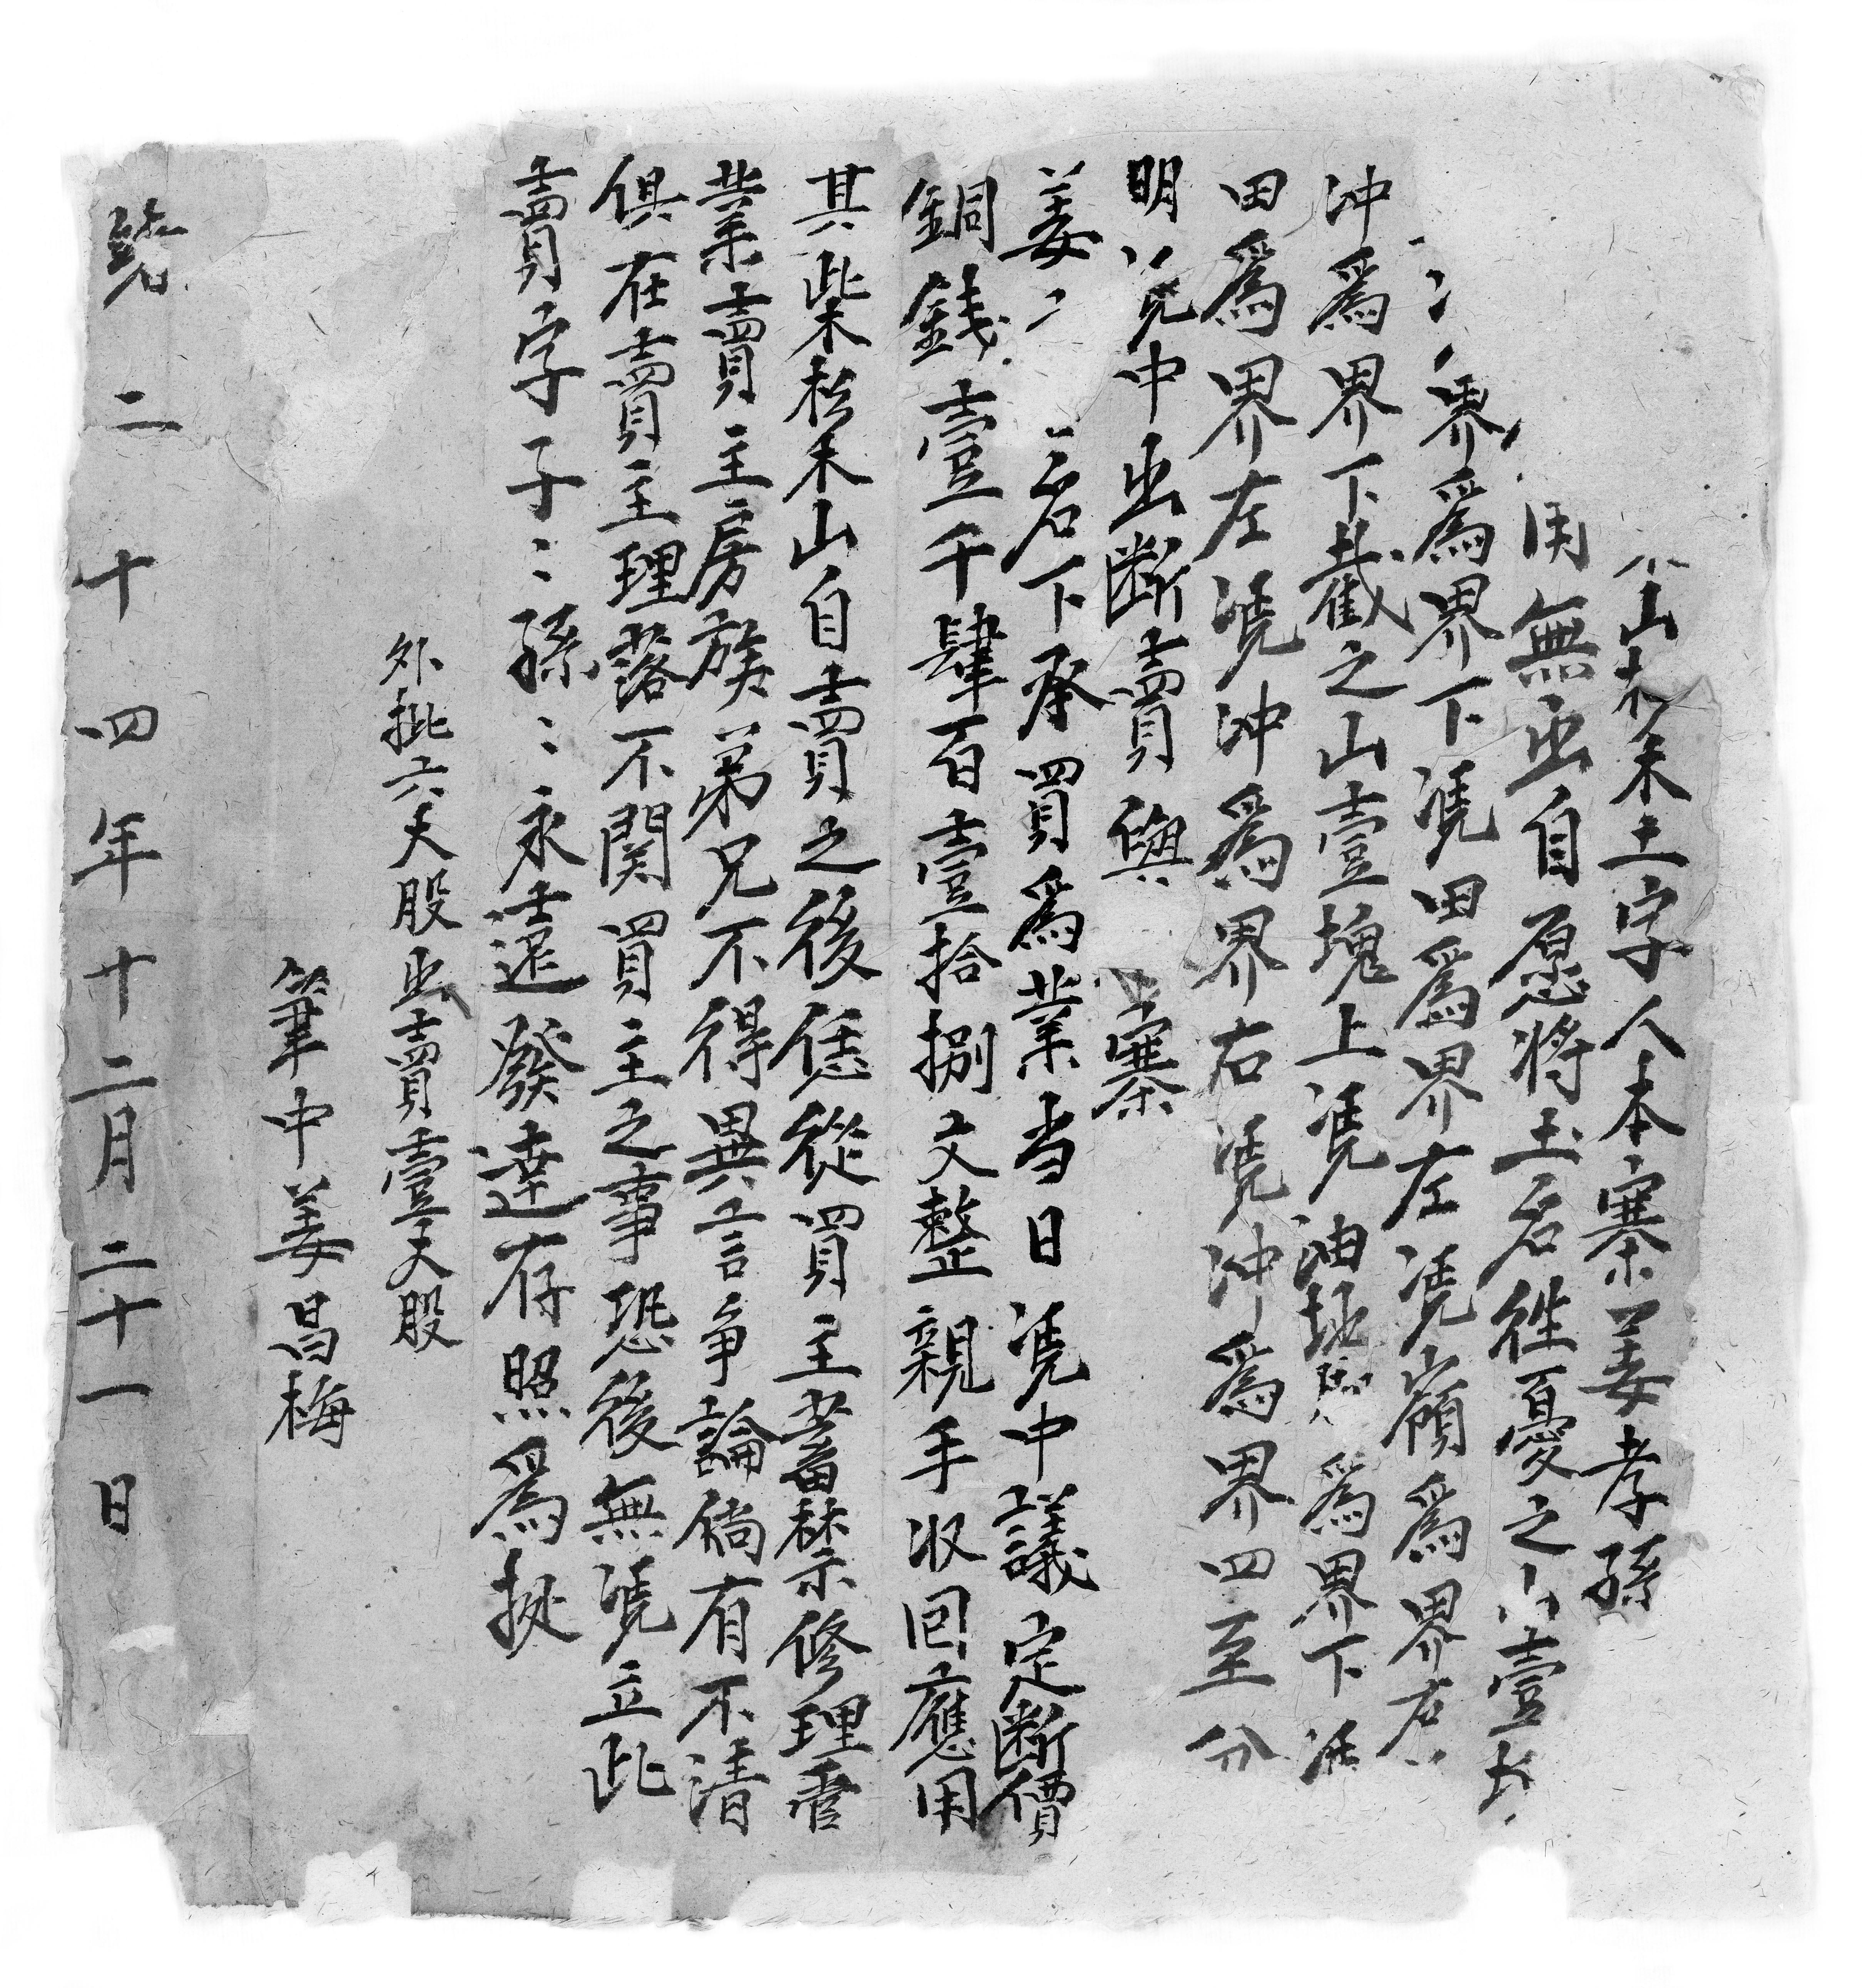 山杉禾土字人本寨姜孝孫
用無出自愿將土名徃憂之山壹
界為界下凴田為界左凴嶺為界右
沖為界下截之山壹塊上凴油地為界下凴
田為界左凴沖為界右凴沖為界四至分
明凴中出斷賣與 寨
姜 名下承買為業当日凴中議定断價
銅錢壹千肆百壹拾捌文整親手収回應用
其柴杉禾山自賣之後恁從買主蓄禁修理管
業賣主房族弟兄不得異言争論倘有不清
俱在賣主理落不関買主之事恐後無凴立此
賣字子〻孫〻永遠發達存照為拠
外批六大股出賣壹大股
筆中姜昌梅
緒二十四年十二月二十一日